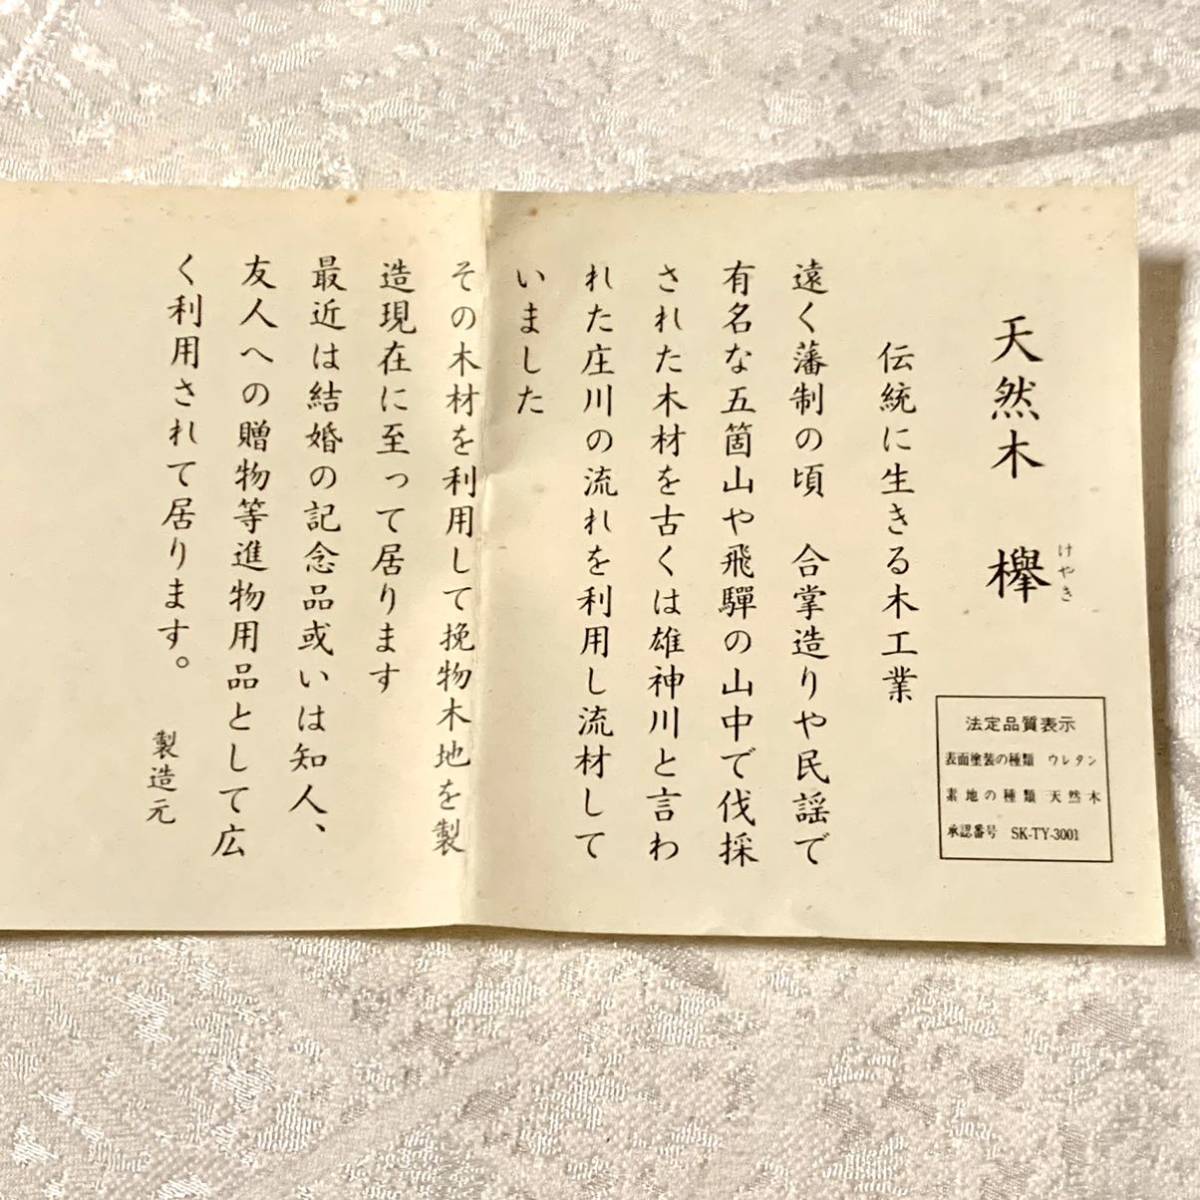 天然木 欅
けやき
伝統に生きる木工業
遠く藩制の頃 合掌造りや民謡で
有名な五箇山や飛騨の山中で伐採
された木材を古くは雄神川と言わ
れた庄川の流れを利用し流材して
いました
その木材を利用して挽物木地を製
造現在に至って居ります
最近は結婚の記念品或いは知人、
友人への贈物等進物用品として広
く利用されて居ります。
製造元
法定品質表示
表面塗装の種類 ウレタン
素地の種類 天然木
承認番号 SK-TY-3001